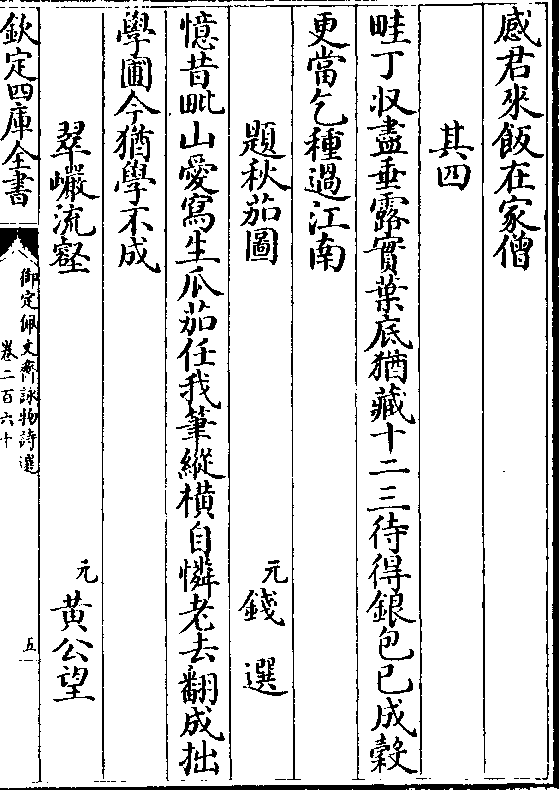 感君來飯在家僧
其四
畦丁収盡垂露實葉底猶藏十二三待得銀包已成糓
更當乞種過江南
題秋茄圖 元 錢選
憶昔毗山愛寫生瓜茄任我筆縱橫自憐老去翻成拙
學圃今猶學不成
翠巗流壑 元 黄公望
欽定四庫全書
御定佩文齋詠物詩選
卷二百六十
五